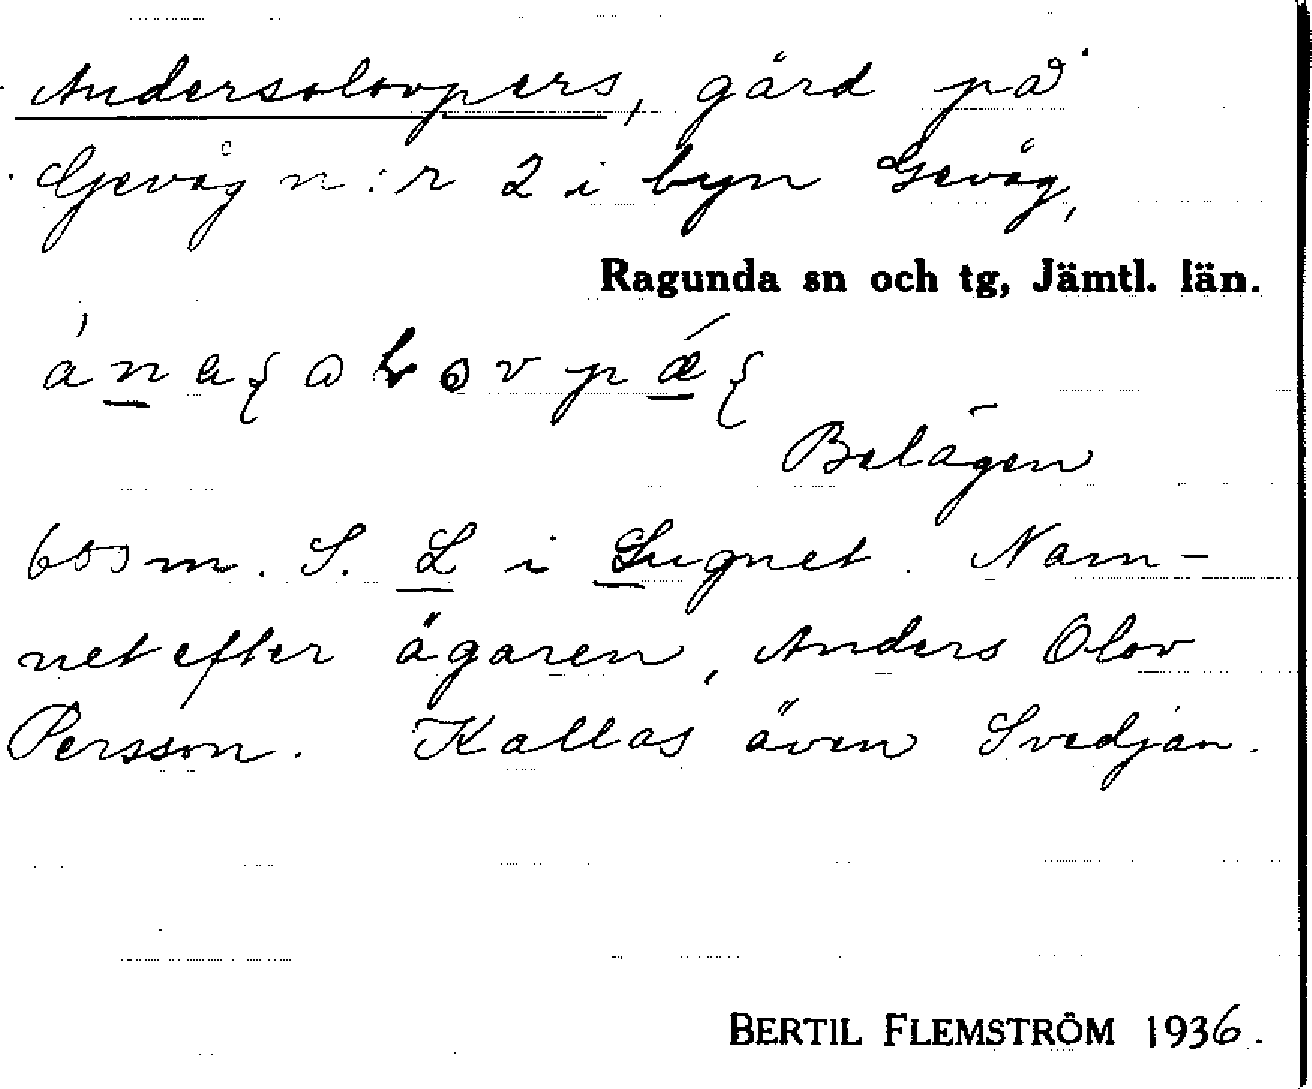 Andersolovpers, gård på
Gevåg n:r 2 i byn Gevåg,
Ragunda sn och tg, Jämtl. län.
Belägen
600 m. S. L i Lugnet. Nam-
net efter ägaren, Anders Olov
Persson. Kallas även Svedjan.
BERTIL FLEMSTRÖM 1936.